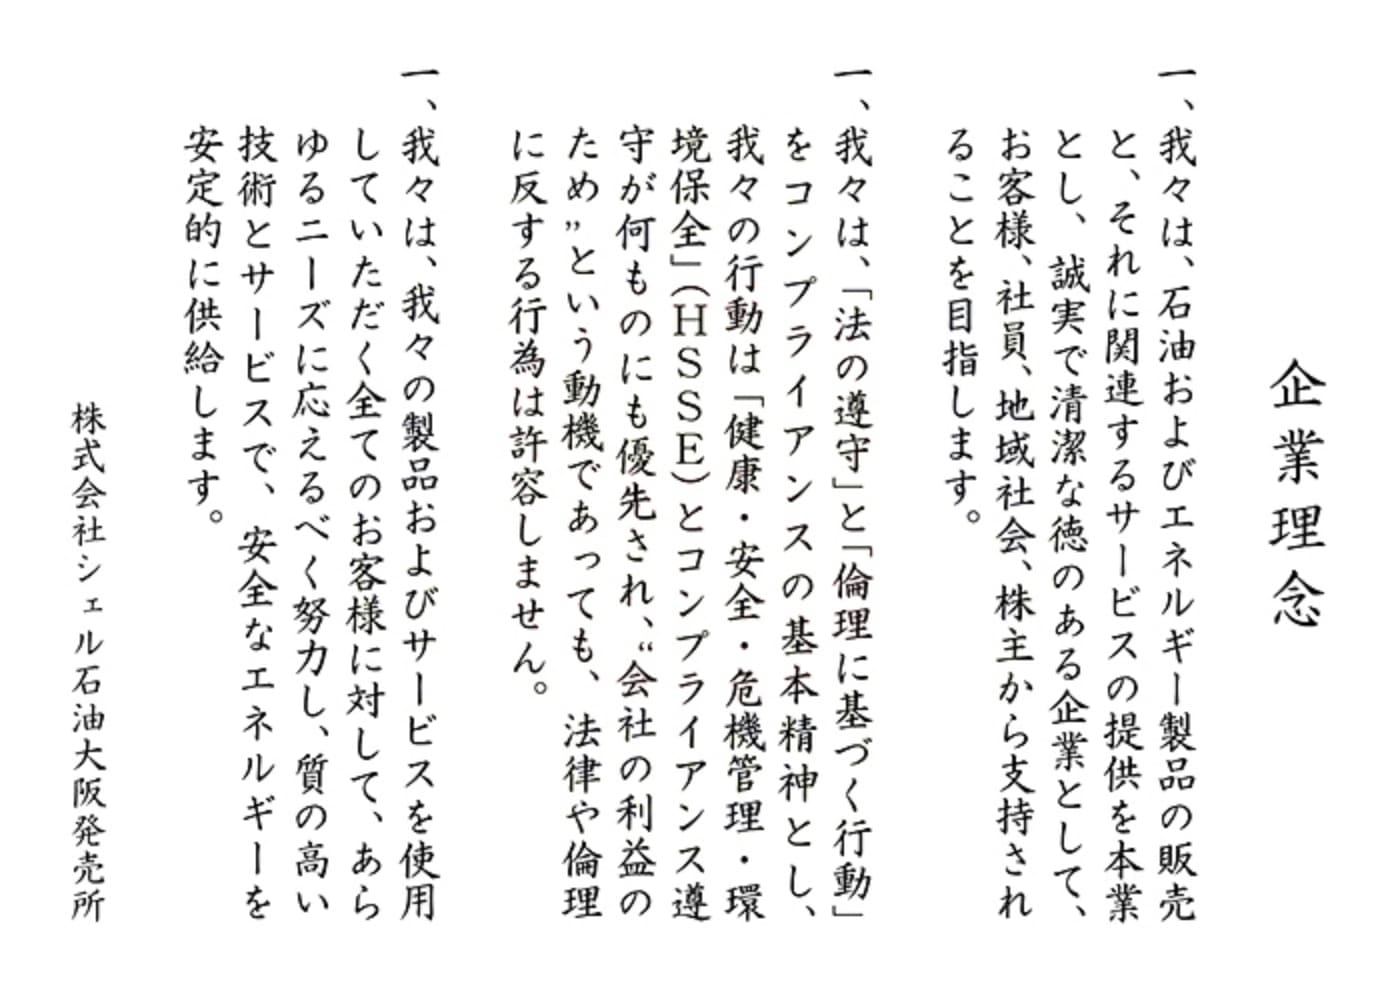 企業理念
一、我々は、石油およびエネルギー製品の販売
と、それに関連するサービスの提供を本業
とし、誠実で清潔な徳のある企業として、
お客様、社員、地域社会、株主から支持され
ることを目指します。
一、我々は、「法の遵守」と「倫理に基づく行動」
をコンプライアンスの基本精神とし、
我々の行動は「健康・安全・危機管理・環
境保全」（ＨＳＳＥ）とコンプライアンス遵
守が何ものにも優先され、“会社の利益の
ため”という動機であっても、法律や倫理
に反する行為は許容しません。
一、我々は、我々の製品およびサービスを使用
していただく全てのお客様に対して、あら
ゆるニーズに応えるべく努力し、質の高い
技術とサービスで、安全なエネルギーを
安定的に供給します。
株式会社シェル石油大阪発売所